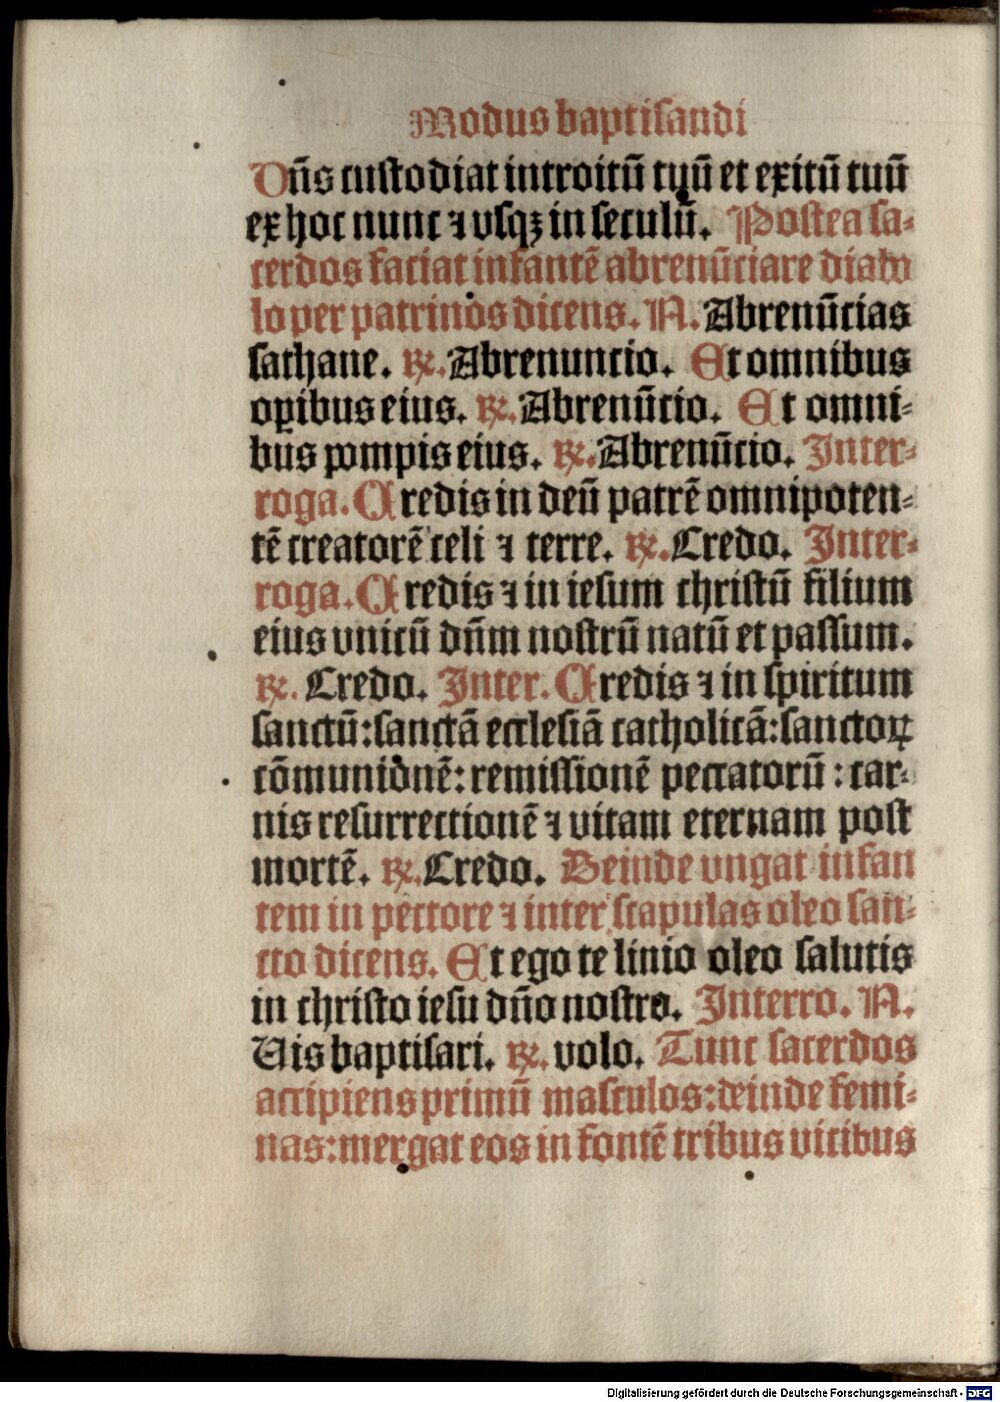 Modus baptisandi
Dn̄s custodiat introitū tuū et exitū tuū
ex hoc nunc ⁊ vsqꝫ in seculū. Postea sa⸗
cerdos faciat infantē abrenūciare diabo
lo per patrinos dicens. N. Abrenūcias
sathane. ℞. Abrenuncio. Et omnibus
oꝑibus eius. ℞. Abrenūcio. Et omni⸗
bus pompis eius. ℞. Abrenūcio. Inter⸗
roga. Credis in deū patrē omnipoten⸗
tē creatorē celi ⁊ terre. ℞. Credo. Inter⸗
roga. Credis ⁊ in iesum christū filium
eius vnicū dn̄m nostrū natū et passum.
℞. Credo. Inter. Credis ⁊ in spiritum
sanctū: sanctā ecclesiā catholicā: sanctoꝝ
cōmunionē: remissionē peccatorū : car⸗
nis resurrectionē ⁊ vitam eternam post
mortē. ℞. Credo. Deinde vngat infan
tem in pectore ⁊ inter scapulas oleo san⸗
cto dicens. Et ego te linio oleo salutis
in christo iesu dn̄o nostro. Interro. N.
Vis baptisari. ℞. volo. Tunc sacerdos
accipiens primū masculos: deinde femi⸗
nas: mergat eos in fontē tribus vicibus
Digitalisierung gefördert durch die Deutsche Forschungsgemeinschaft - DFG